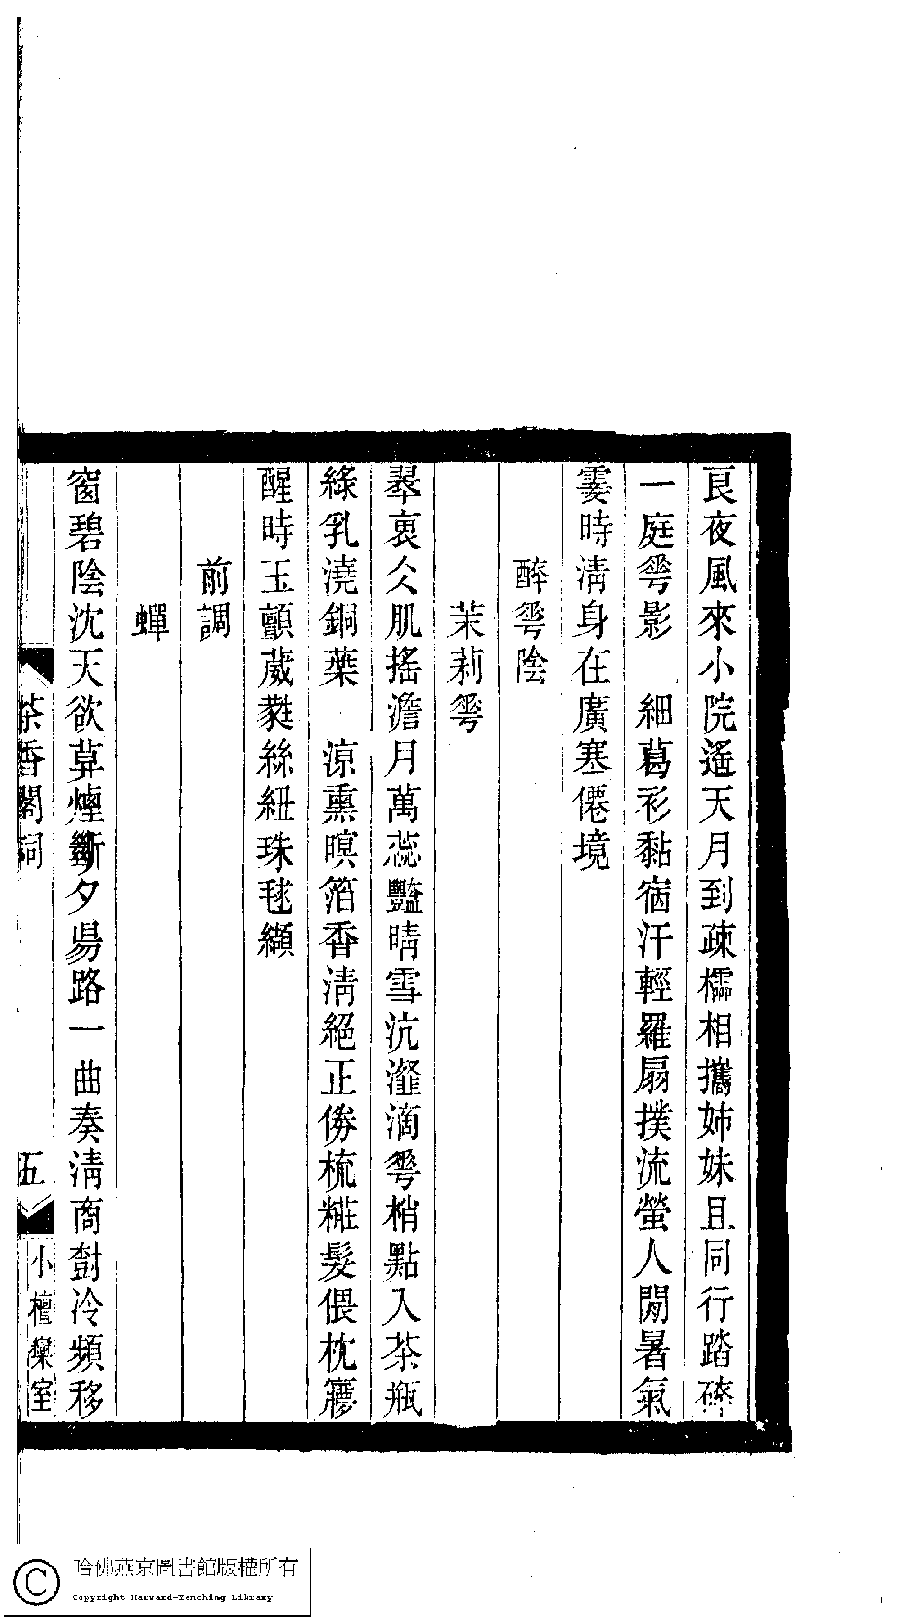 良夜風來小院遙天月到疎櫺相攜姊妹且同行踏碎
一庭琴影　細葛衫黏宿汗輕羅扇撲流螢人閒暑氣
霎時淸身在廣寒僊境
醉琴陰
茉莉琴
翠裛仌肌搖澹月萬蕊豔晴雪沆瀣滴琴梢點入茶瓶
綠乳澆銅葉　涼熏暝箔香淸絕正傍梳糚髮偎枕㝱
醒時玉顫葳蕤絲紐珠毬纈
前調
蟬
窗碧陰沈天欲莫煙斷夕昜路一曲奏淸商𣗳冷頻移
茶香閣詞
五
小檀欒室
哈佛燕京圖書館版權所有
Copyright Harvard-Yenching Library